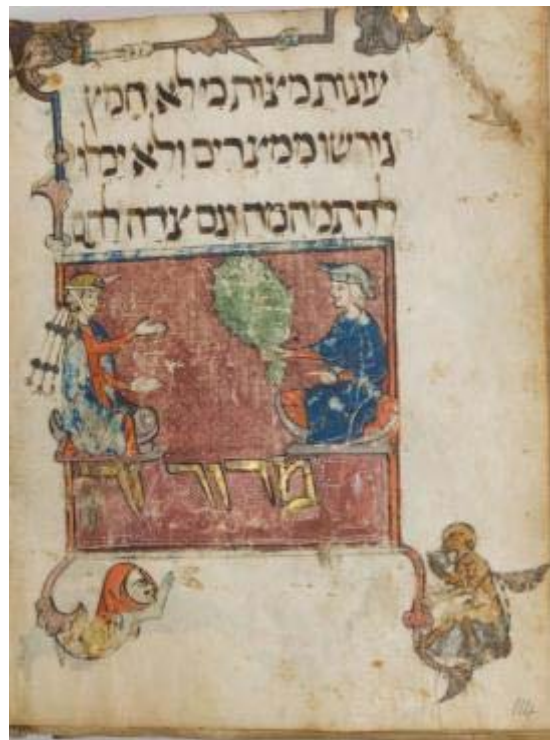 עוגות מצות כי לא חמץ
גורשו ממצרים ולא יכלו
להתמהמה וגם צדה
מרור זה